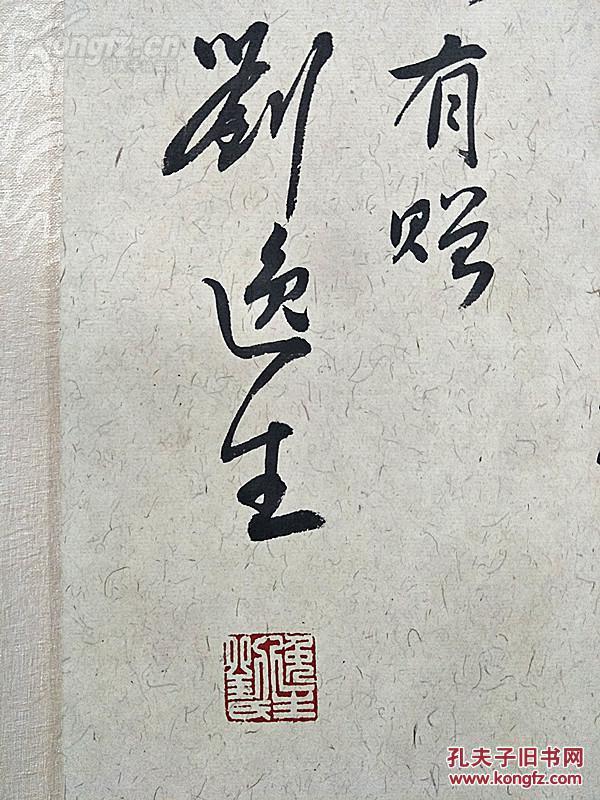 有赠
劉逸生
kongfz.cn
孔夫子旧书网
www.kongfz.com